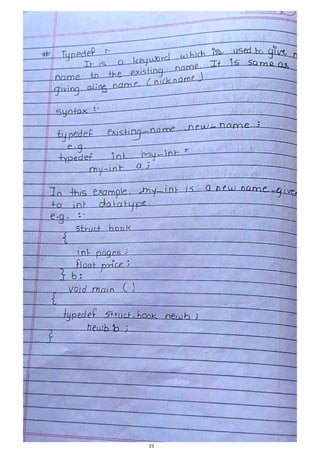 # Typedef :-
It is a keyword which is used to give n
name to the existing name. It is same as
giving alias name (nick name)
Syntax :-
typedef existing-name new-name ;
e.g.
typedef int my-int ;
my-int a ;
In this example, my-int is a new name give
to int datatype.
e.g. :-
struct book
{
int pages ;
float price ;
} b ;
void main ()
{
typedef struct book newb ;
newb b ;
}